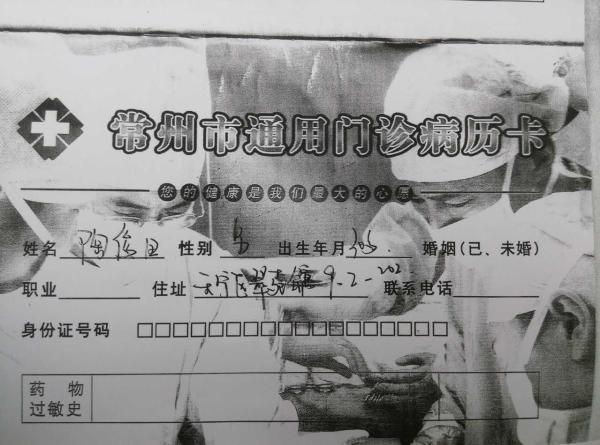 常州市通用门诊病历卡
您的健康是我们最大的心愿
姓名 陶 性别 出生年月 婚姻(已、未婚)
职业 住址 天宁区翠 9-2-202 联系电话
身份证号码 □□□□□□□□□□□□□□□□□□
药物
过敏史